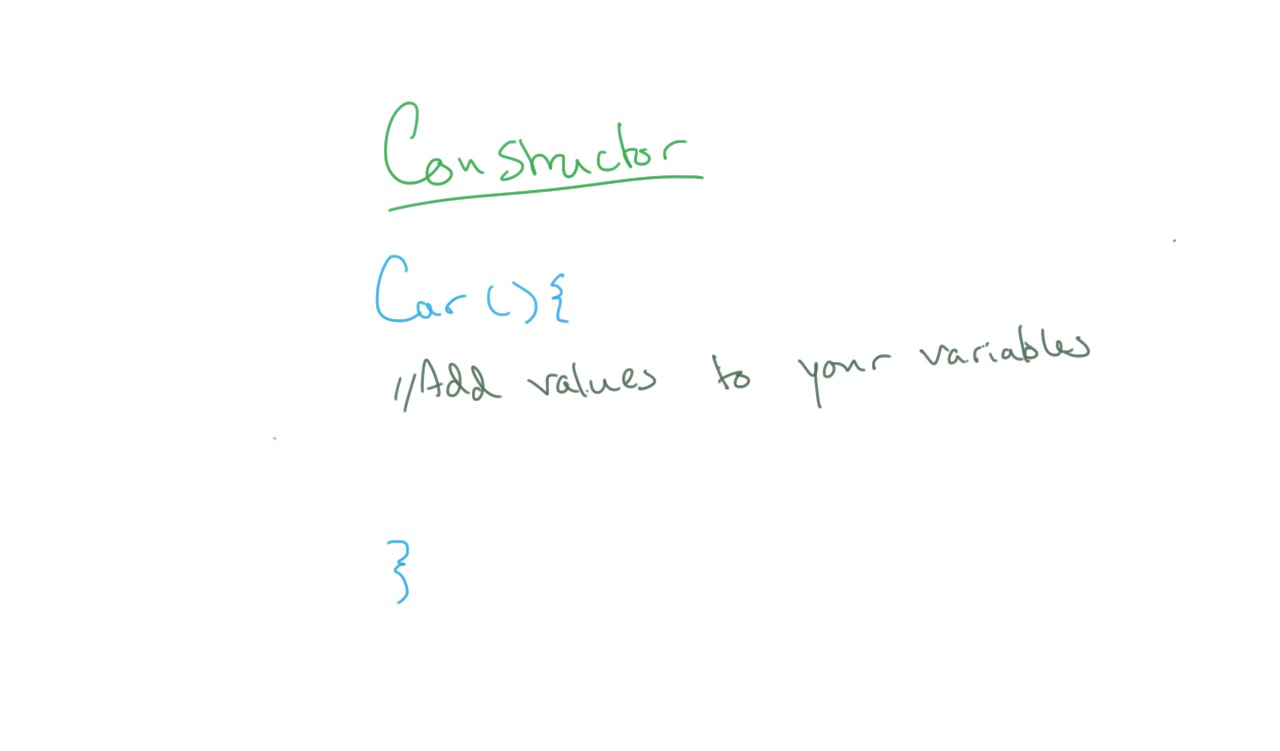 Constructor
Car(){
//Add values to your variables
}